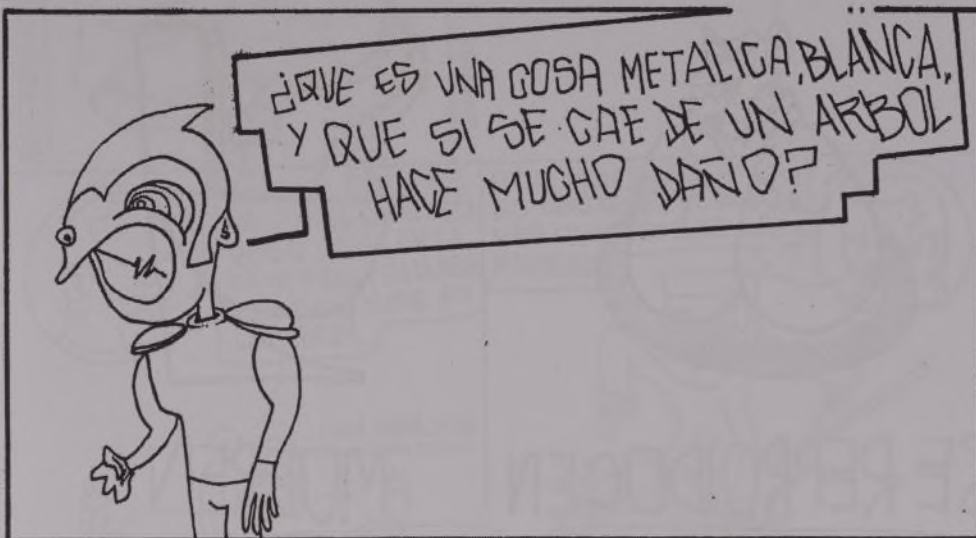 ¿QUE ES UNA COSA METALICA, BLANCA,
Y QUE SI SE CAE DE UN ARBOL
HACE MUCHO DAÑO?